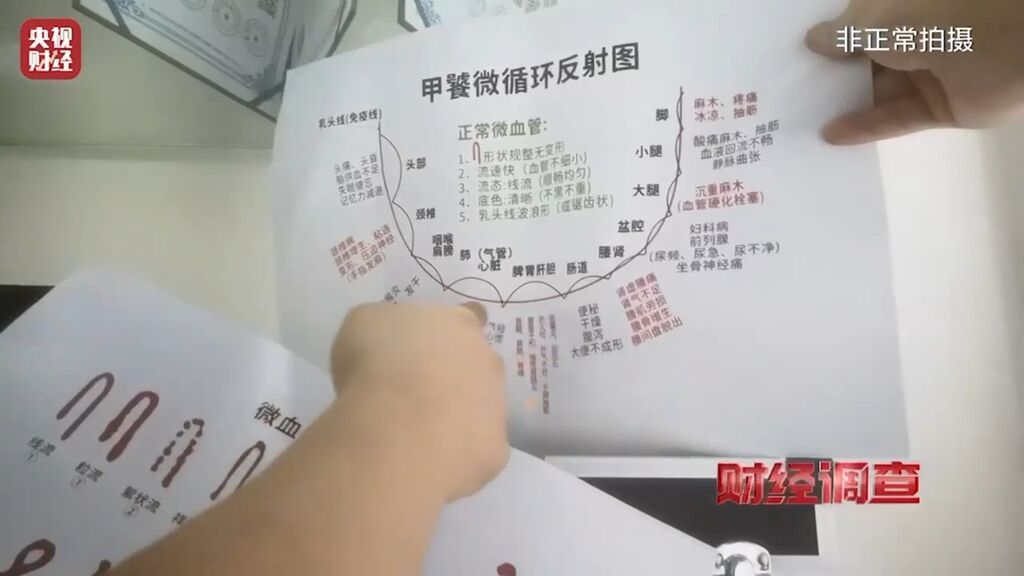 央视
财经
非正常拍摄
甲饕微循环反射图
乳头线(免疫线)
正常微血管:
1、形状规整无变形
2、流速快(血管不细小)
3、流态:线流(顺畅均匀)
4、底色:清晰(不黑不重)
5、乳头线波浪形(或锯齿状)
头部
头痛、头昏
脑供血不足
失眠健忘
记忆力减退
颈椎
颈椎痛
颈椎增生、粘连
变形、压迫神经
(手指发麻)
咽喉
肩膀
肺(气管)
心脏
脾胃肝胆
肠道
腰肾
盆腔
大腿
小腿
脚
麻木、疼痛
冰凉、抽筋
酸痛麻木、抽筋
血液回流不畅
静脉曲张
沉重麻木
(血管硬化栓塞)
妇科病
前列腺
(尿频、尿急、尿不净)
坐骨神经痛
肾虚腰痛
肾气不足
腰肌劳损
腰骨增生
腰间盘脱出
便秘
干燥
腹泻
大便不成形
微血
线流
①
粒流
絮状流
财经调查